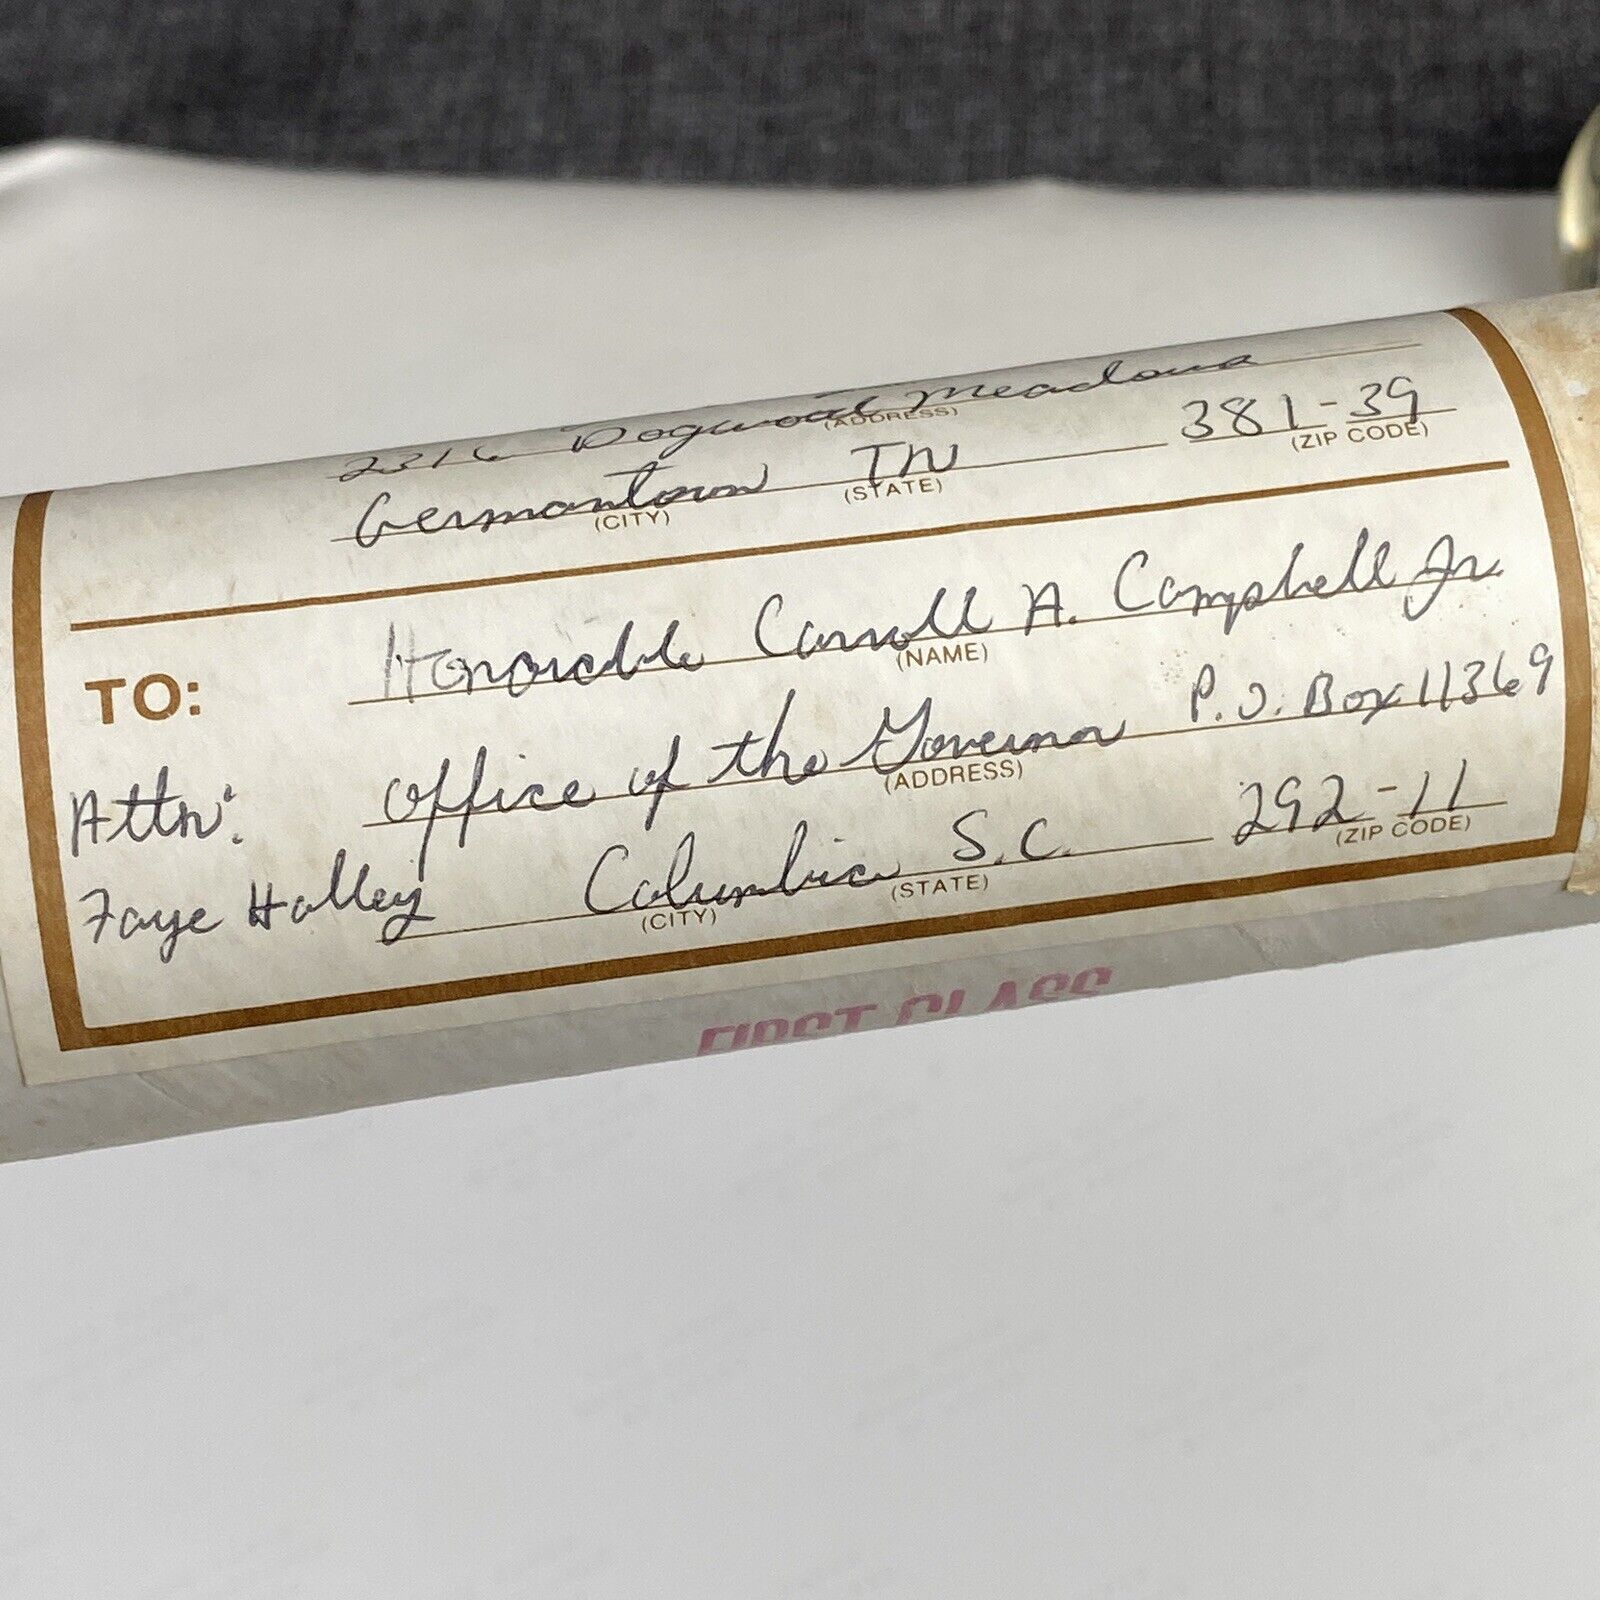 2316 Dogwood Meadows
(ADDRESS)
Germantown TN 381-39
(CITY) (STATE) (ZIP CODE)
TO: Honorable Carroll A. Campbell Jr.
(NAME)
Attn: Office of the Governor P.O. Box 11369
(ADDRESS)
Faye Holley Columbia S.C. 292-11
(CITY) (STATE) (ZIP CODE)
FIRST CLASS